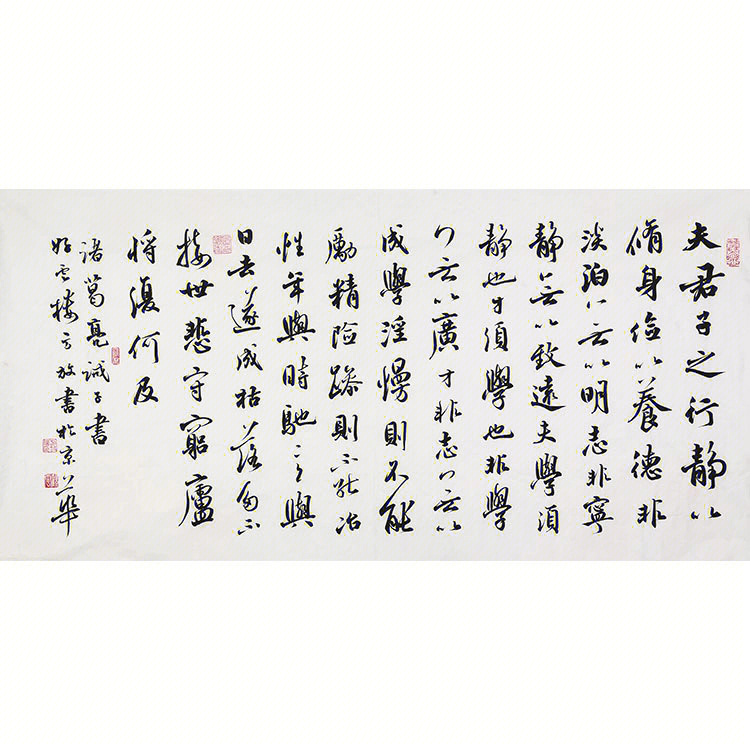 夫君子之行静以
脩身儉以養德非
淡泊無以明志非寧
静無以致遠夫學須
静也才須學也非學
無以廣才非志無以
成學淫慢則不能
勵精險躁則不能冶
性年與時馳意與
日去遂成枯落多不
接世悲守窮廬
將復何及
諸葛亮誡子書
好雲樓方放書於京華